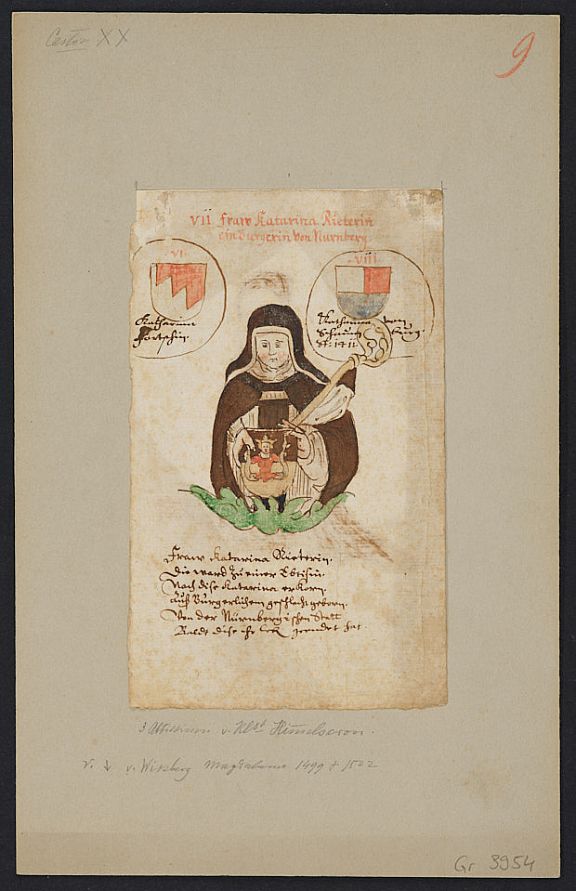 XX
9
VII Fraw Katarina Rieterin
ein Burgerin von Nurmberg
VI
Katharina
Fortschin.
VIII
Katharina von
Schaumburg.
St: 1411
Fraw Katarina Rieterin.
Die ward zu einer Ebtisin.
Nach dise Katarina erkorn.
Auß Burgerlichem geschlecht geborn.
Von der Nürmbergischen Statt
Baldt dise ihr geendet hat.
3 Äbtissinnen v. Himelscron.
v. Wirsberg Magdalena 1499 + 1522
Gr 3954